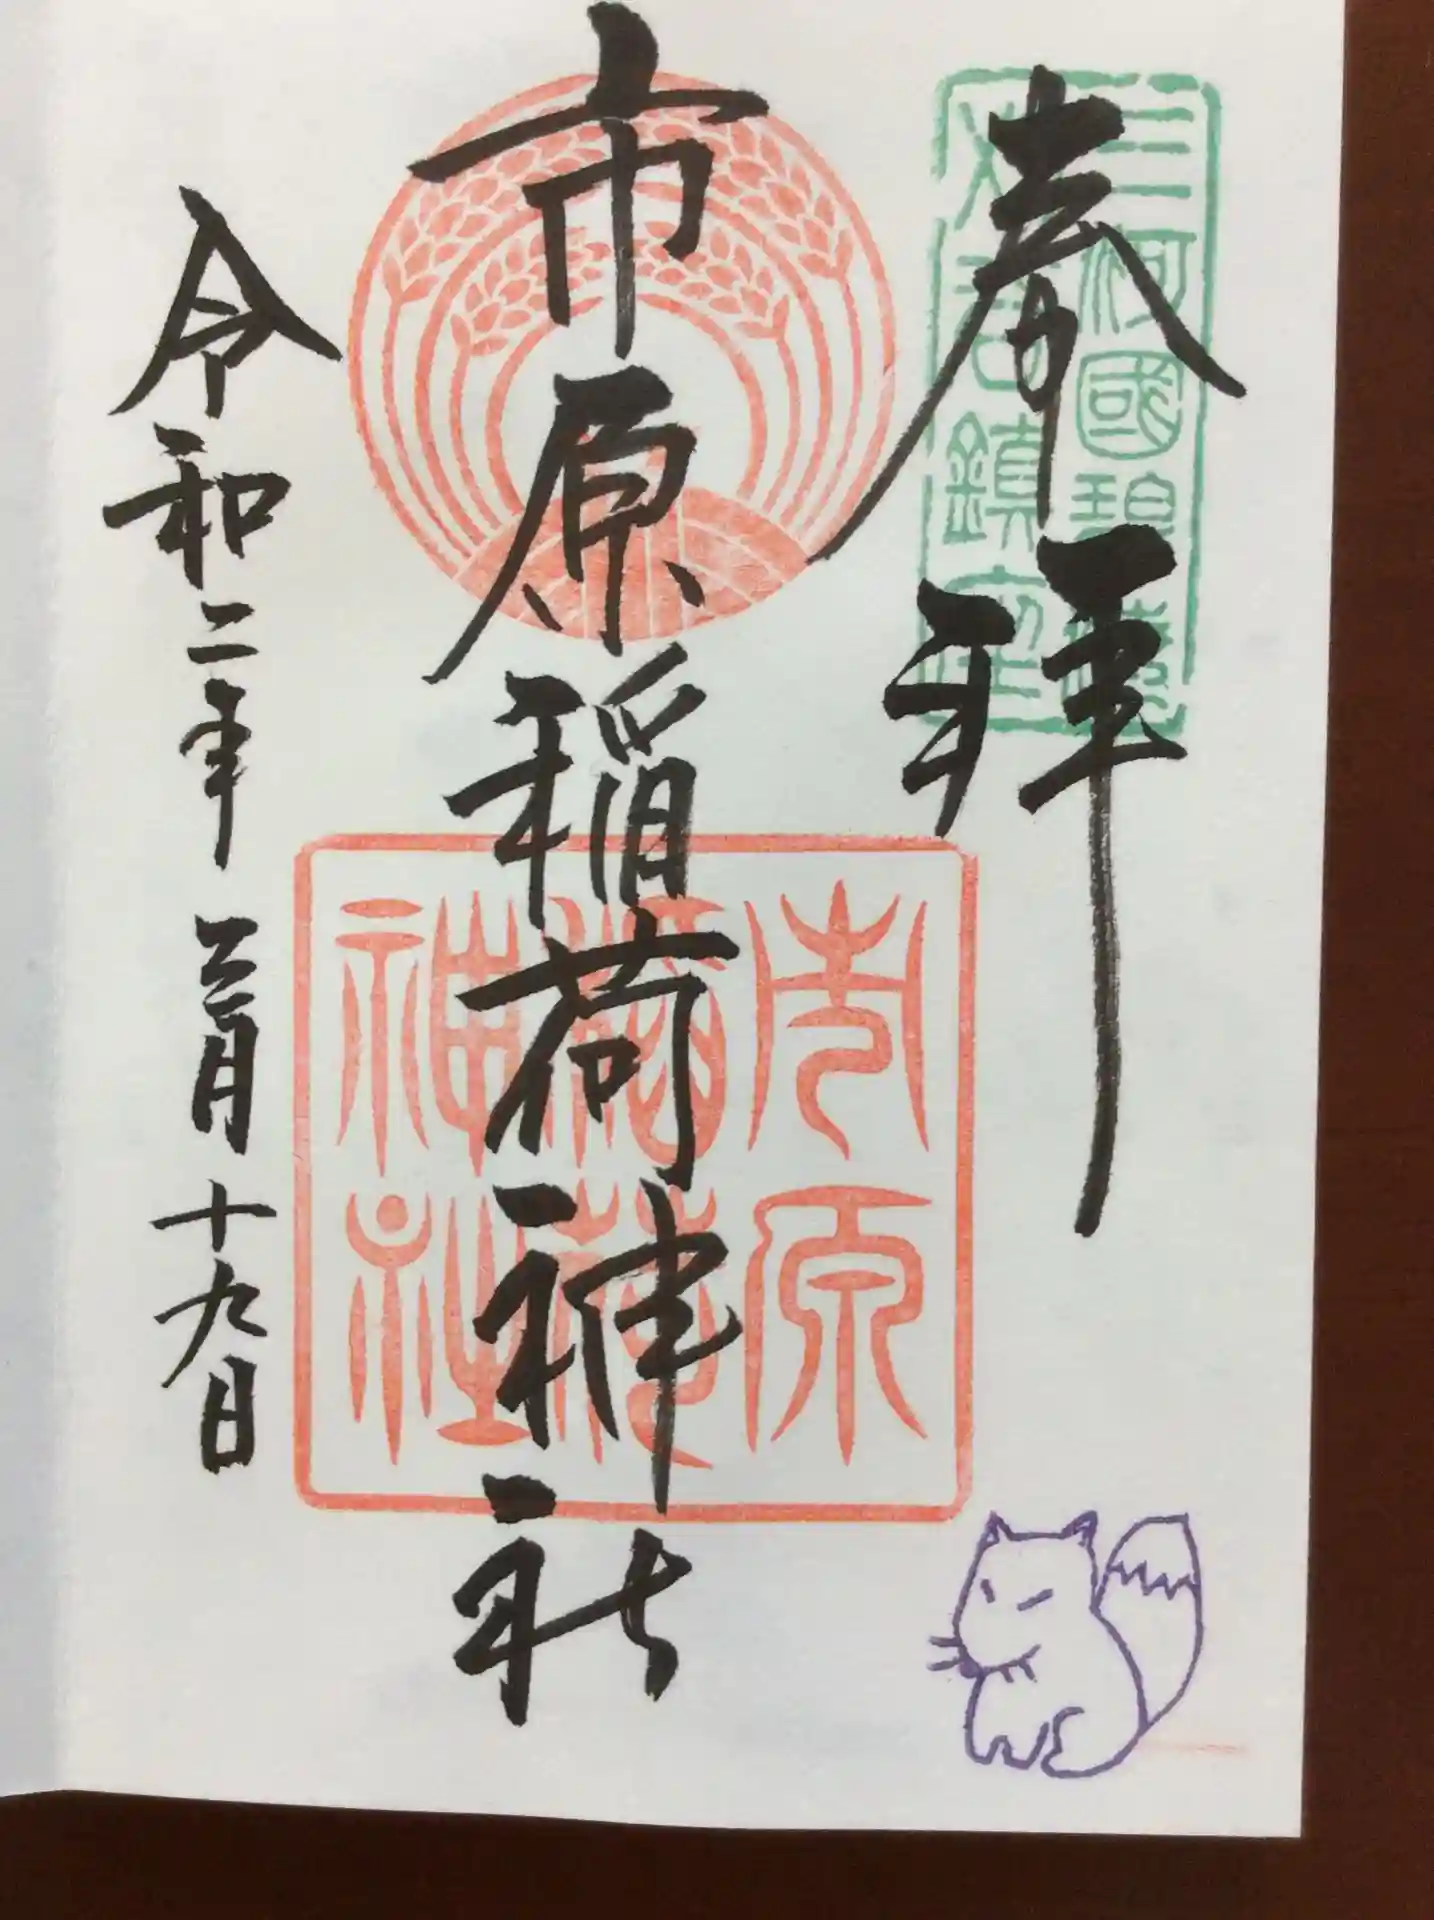 奉拝
三河國碧海
刈谷鎮座
市原稲荷神社
市原
稲荷
神社
令和二年三月十九日